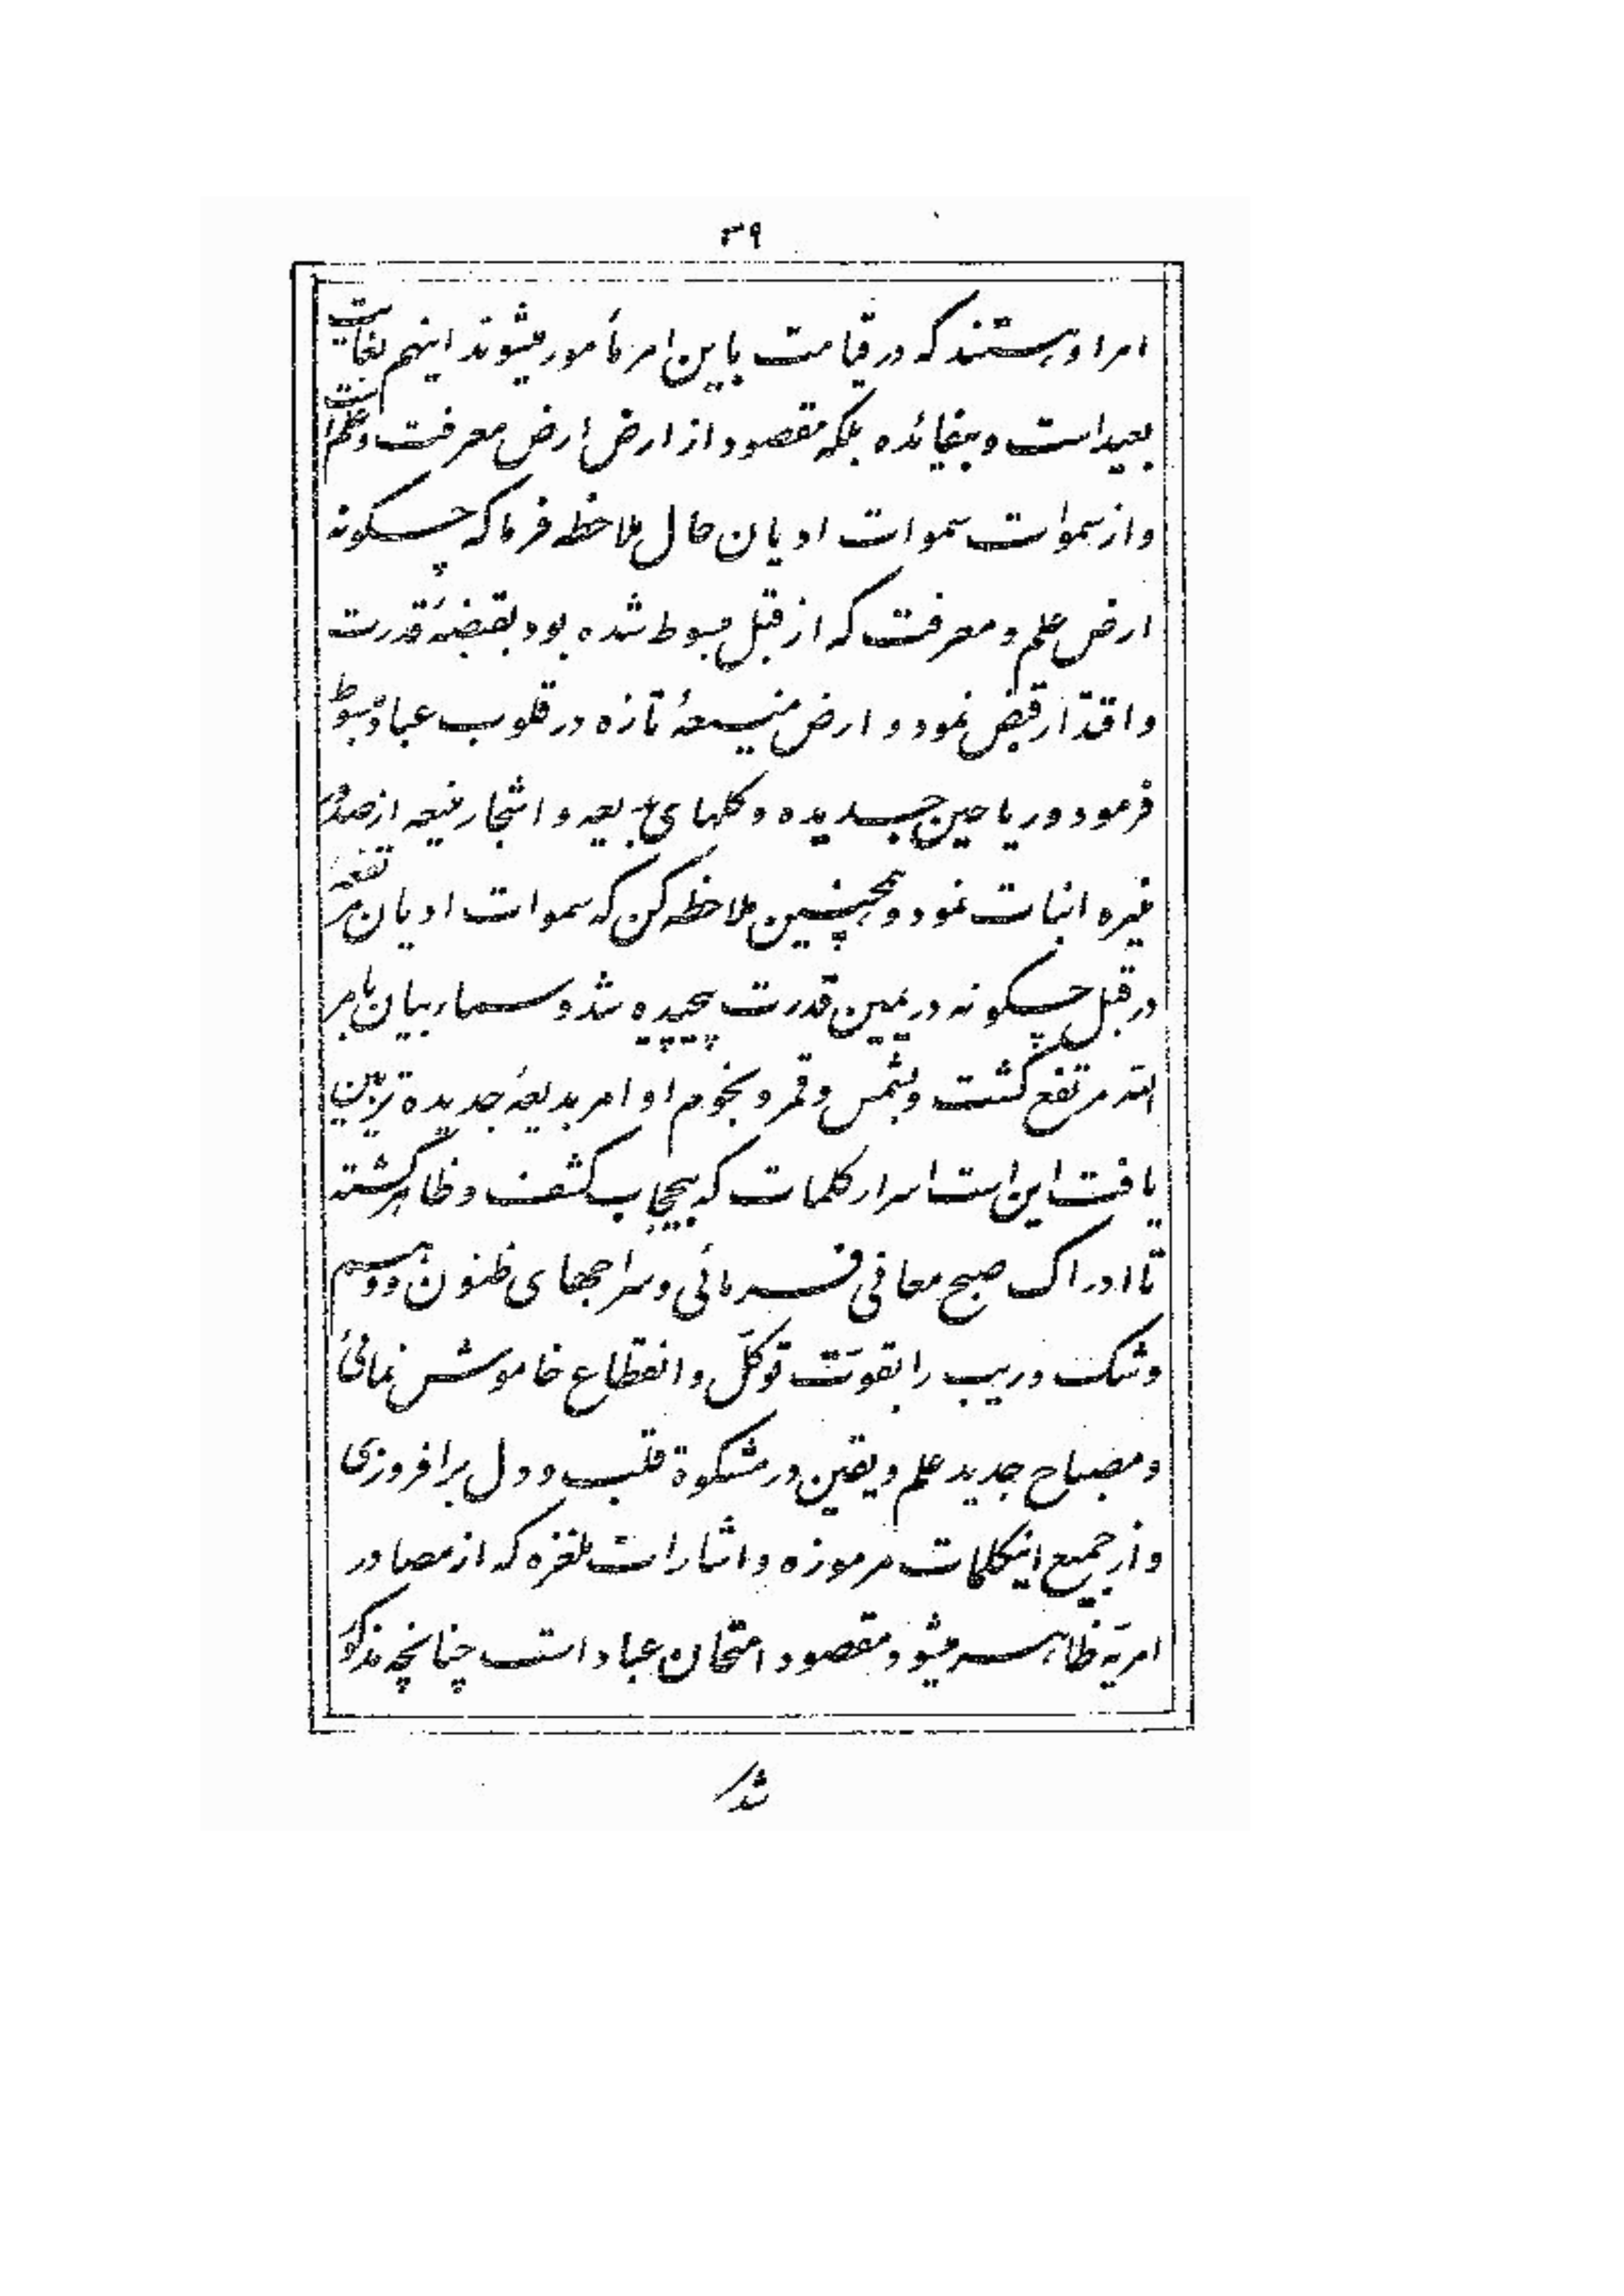 ۳۹
امر او هستند که در قیامت باین امر مأمور میشوند اینهم بغایت
بعید است و بیفائده بلکه مقصود از ارض ارض معرفت و علم است
و از سموات سموات ادیان حال ملاحظه فرما که چگونه
ارض علم و معرفت که از قبل مبسوط شده بود بقبضهٔ قدرت
و اقتدار قبض نمود و ارض منیعهٔ تازه در قلوب عباد مبسوط
فرمود و ریاحین جدیده و گلهای بدیعه و اشجار منیعه از صدور
منیره انبات نمود و همچنین ملاحظه کن که سموات ادیان مرتفعه
در قبل چگونه در یمین قدرت پیچیده شد و سماء بیان بامر
الله مرتفع گشت و بشمس و قمر و نجوم اوامر بدیعهٔ جدیده تزیین
یافت این است اسرار کلمات که بیحجاب کشف و ظاهر گشته
تا ادراک صبح معانی فرمائی و سراجهای ظنون و وهم
و شک و ریب را بقوّت توکّل و انقطاع خاموش نمائی
و مصباح جدید علم و یقین در مشکوة قلب و دل برافروزی
و از جمیع اینکلمات مرموزه و اشارات ملغزه که از مصادر
امریّه ظاهر میشود مقصود امتحان عباد است چنانچه مذکور
شد